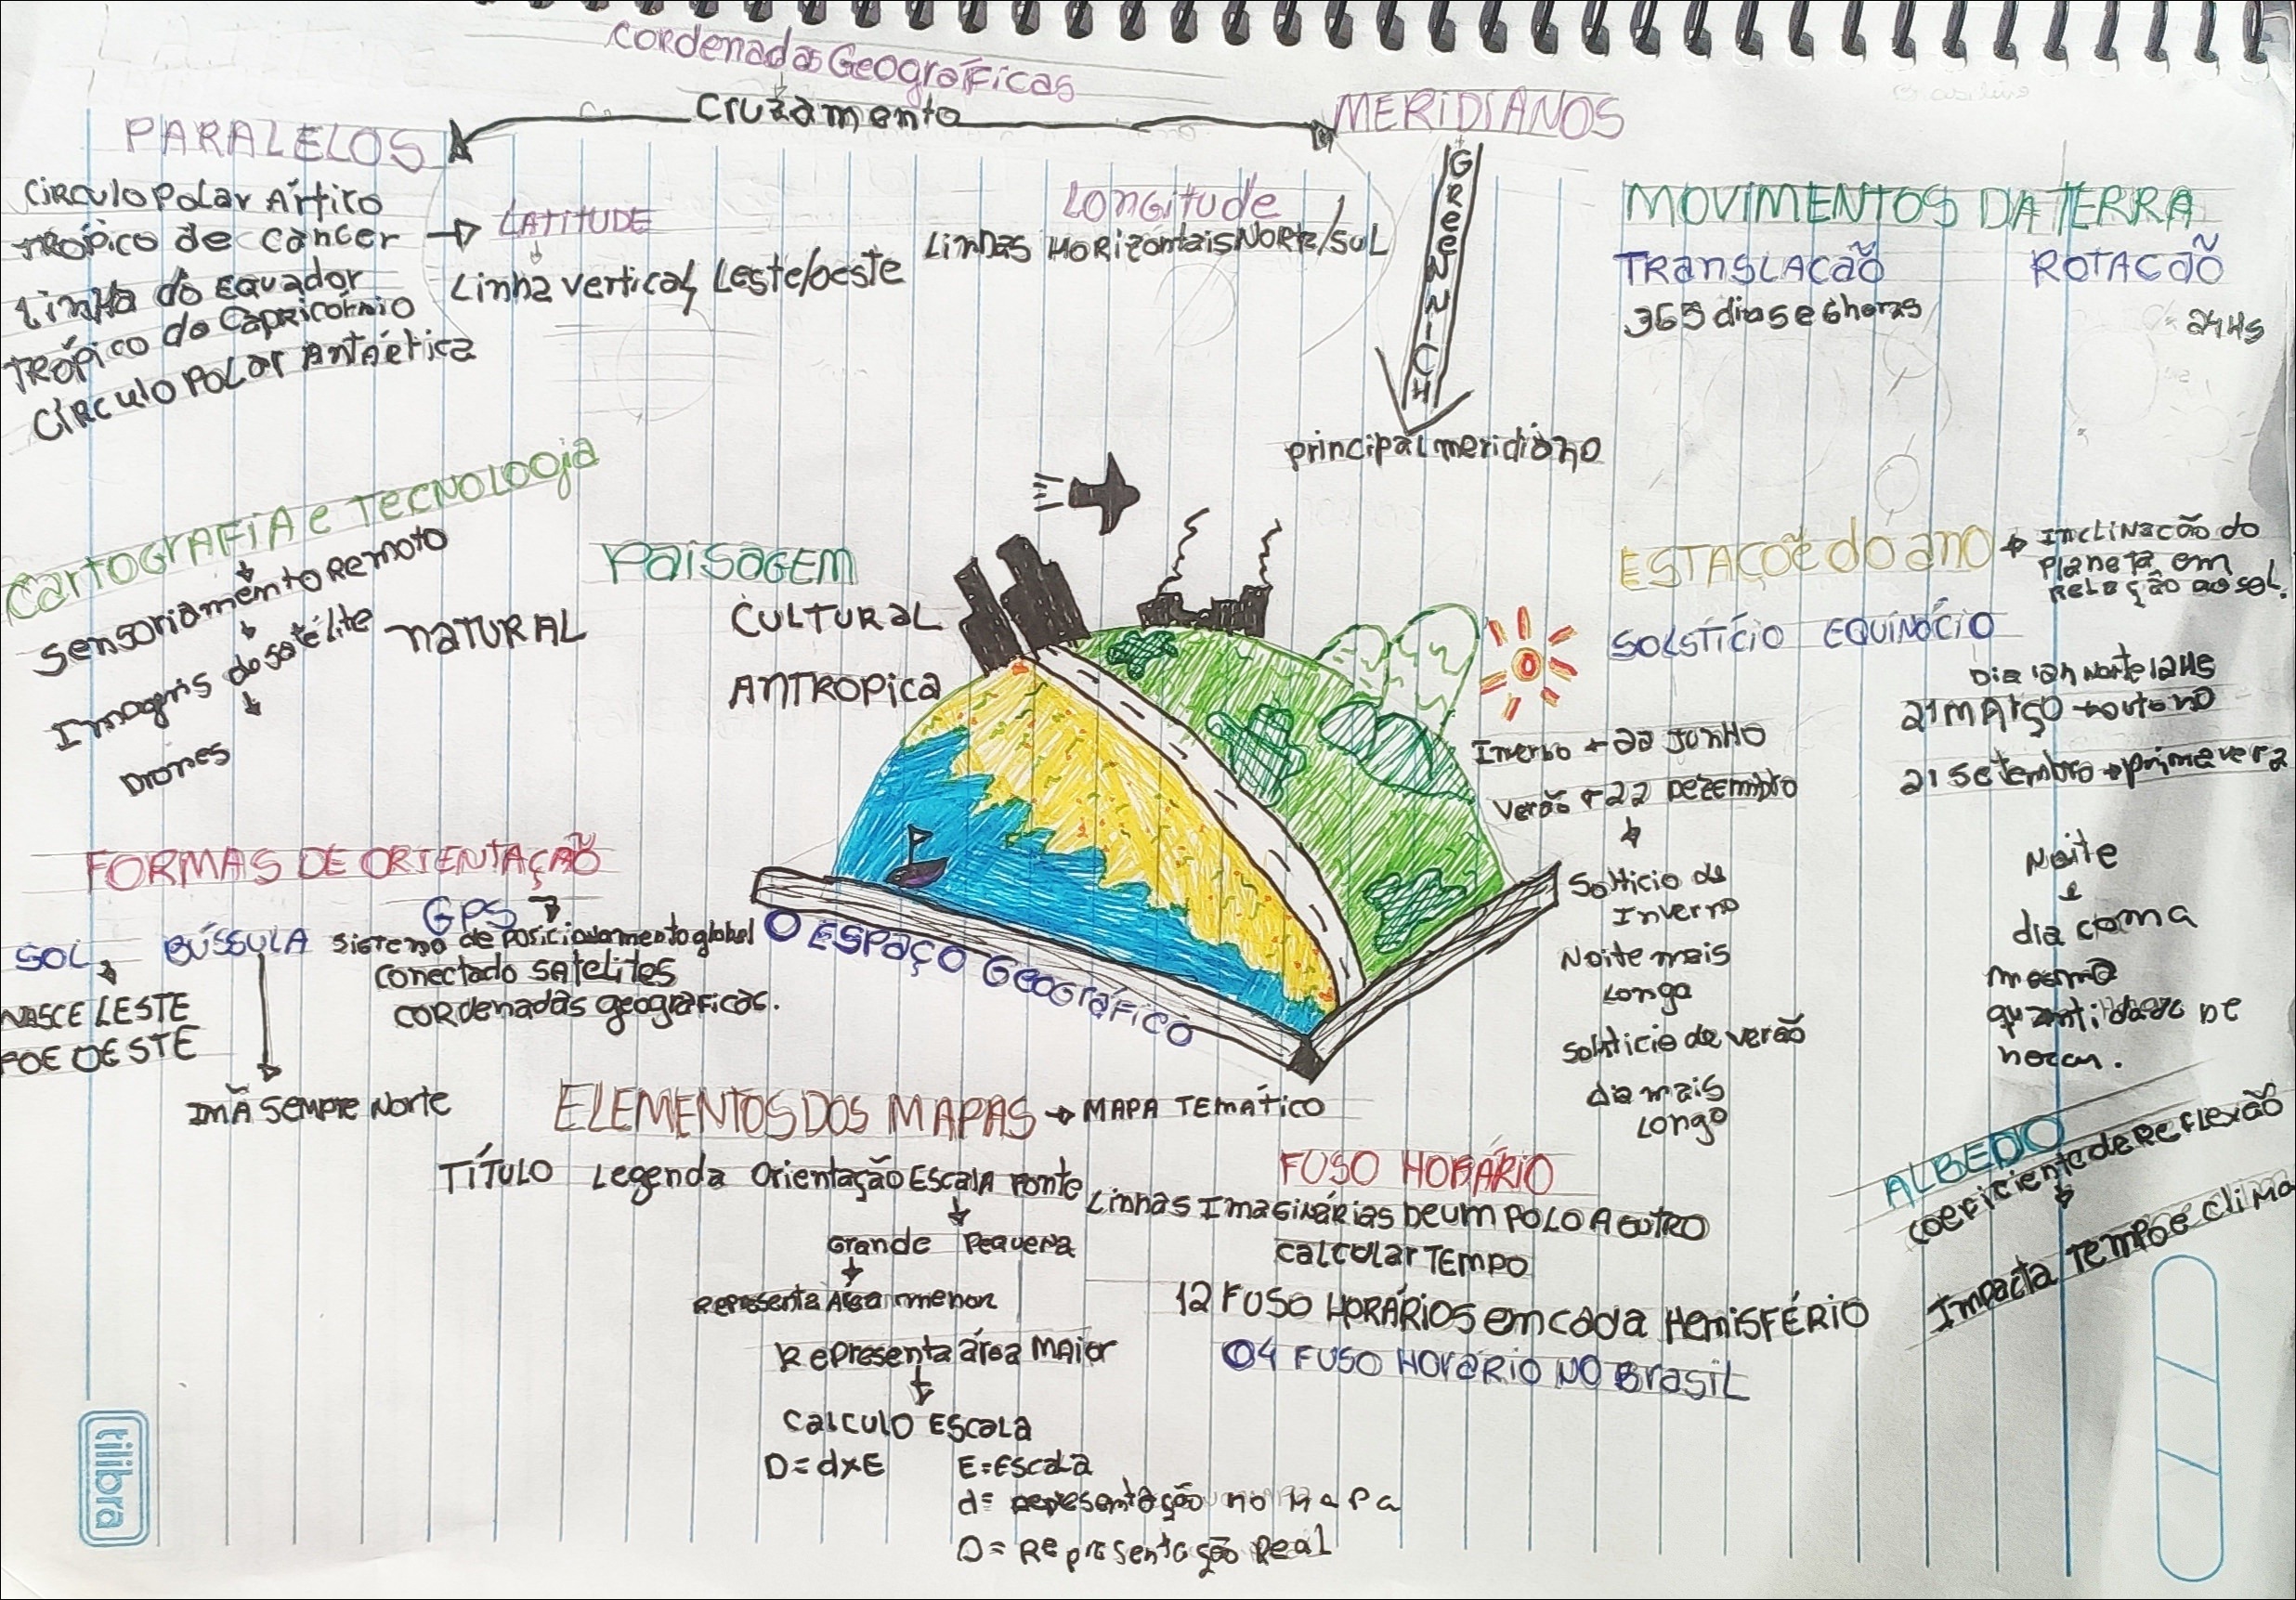 Cordenadas Geográficas
Cruzamento
PARALELOS
Circulo Polar Ártico
Trópico de Câncer → LATITUDE
Linha do Equador
Trópico do Capricórnio
Círculo Polar Antártica
Linha vertical, Leste/oeste
Longitude
Linhas Horizontais Norte/Sul
MERIDIANOS
GREENWICH
principal meridiano
MOVIMENTOS DA TERRA
TRANSLAÇÃO
365 dias e 6 horas
ROTAÇÃO
24Hs
Cartografia e Tecnologia
Sensoriamento Remoto
Imagens do satélite
Drones
PAISAGEM
NATURAL
CULTURAL
ANTROPICA
ESTAÇÕE do ano → Inclinação do
Planeta em
Relação ao sol.
SOLSTÍCIO EQUINÓCIO
Inverno → 22 JUNHO
Verão → 22 DEZEMBRO
Solticio de
Inverno
Noite mais
Longa
Solsticio de verão
dia mais
Longo
Dia 12h Norte 12Hs
21 MARÇO → outono
21 Setembro → primavera
Noite
e
dia com a
mesma
quantidade DE
horas.
FORMAS DE ORIENTAÇÃO
SOL
NASCE LESTE
POE OESTE
BÚSSULA
IMÃ SEMPRE NORTE
GPS
Sistema de posicionamento global
Conectado satelites
cordenadas geograficas.
O ESPAÇO Geográfico
ELEMENTOS DOS MAPAS → MAPA TEMÁTICO
TÍTULO Legenda Orientação Escala Fonte
Grande Pequena
Representa Área menor
Representa área Maior
Calculo Escala
D=dxE
E=Escala
d= representação no Mapa
D= Representação Real
FUSO HORÁRIO
Linhas Imaginárias de um Polo a outro
Calcular Tempo
12 FUSO HORÁRIOS em cada Hemisfério
04 FUSO HORARIO NO Brasil
ALBEDO
coeficiente de Reflexão
Impacta Tempo e clima
tilibra